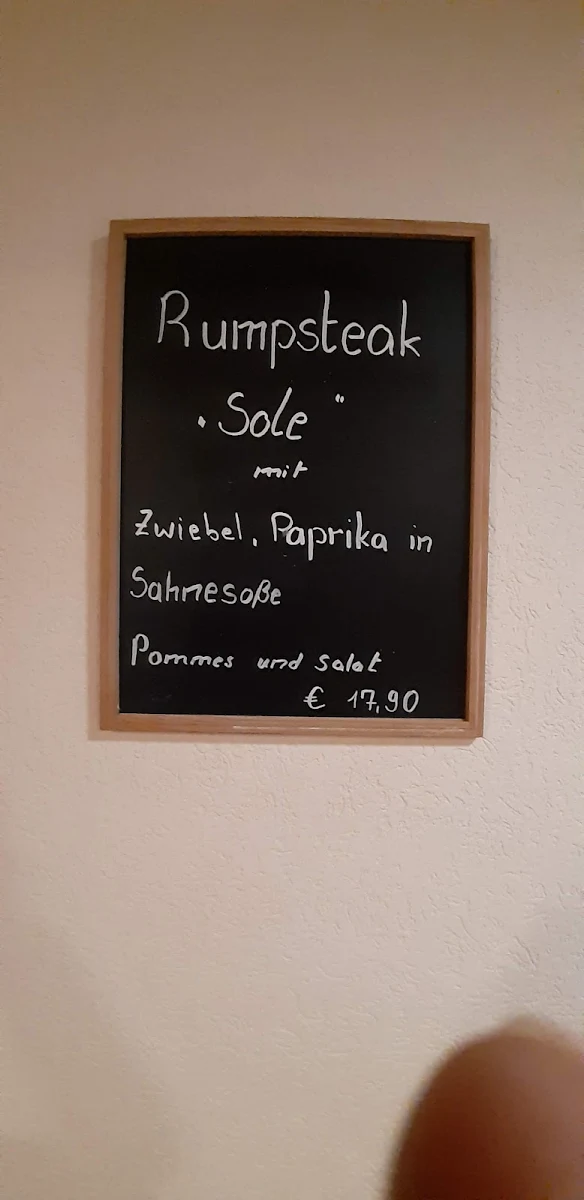 Rumpsteak
"Sole"
mit
Zwiebel, Paprika in
Sahnesoße
Pommes und Salat
€ 17,90